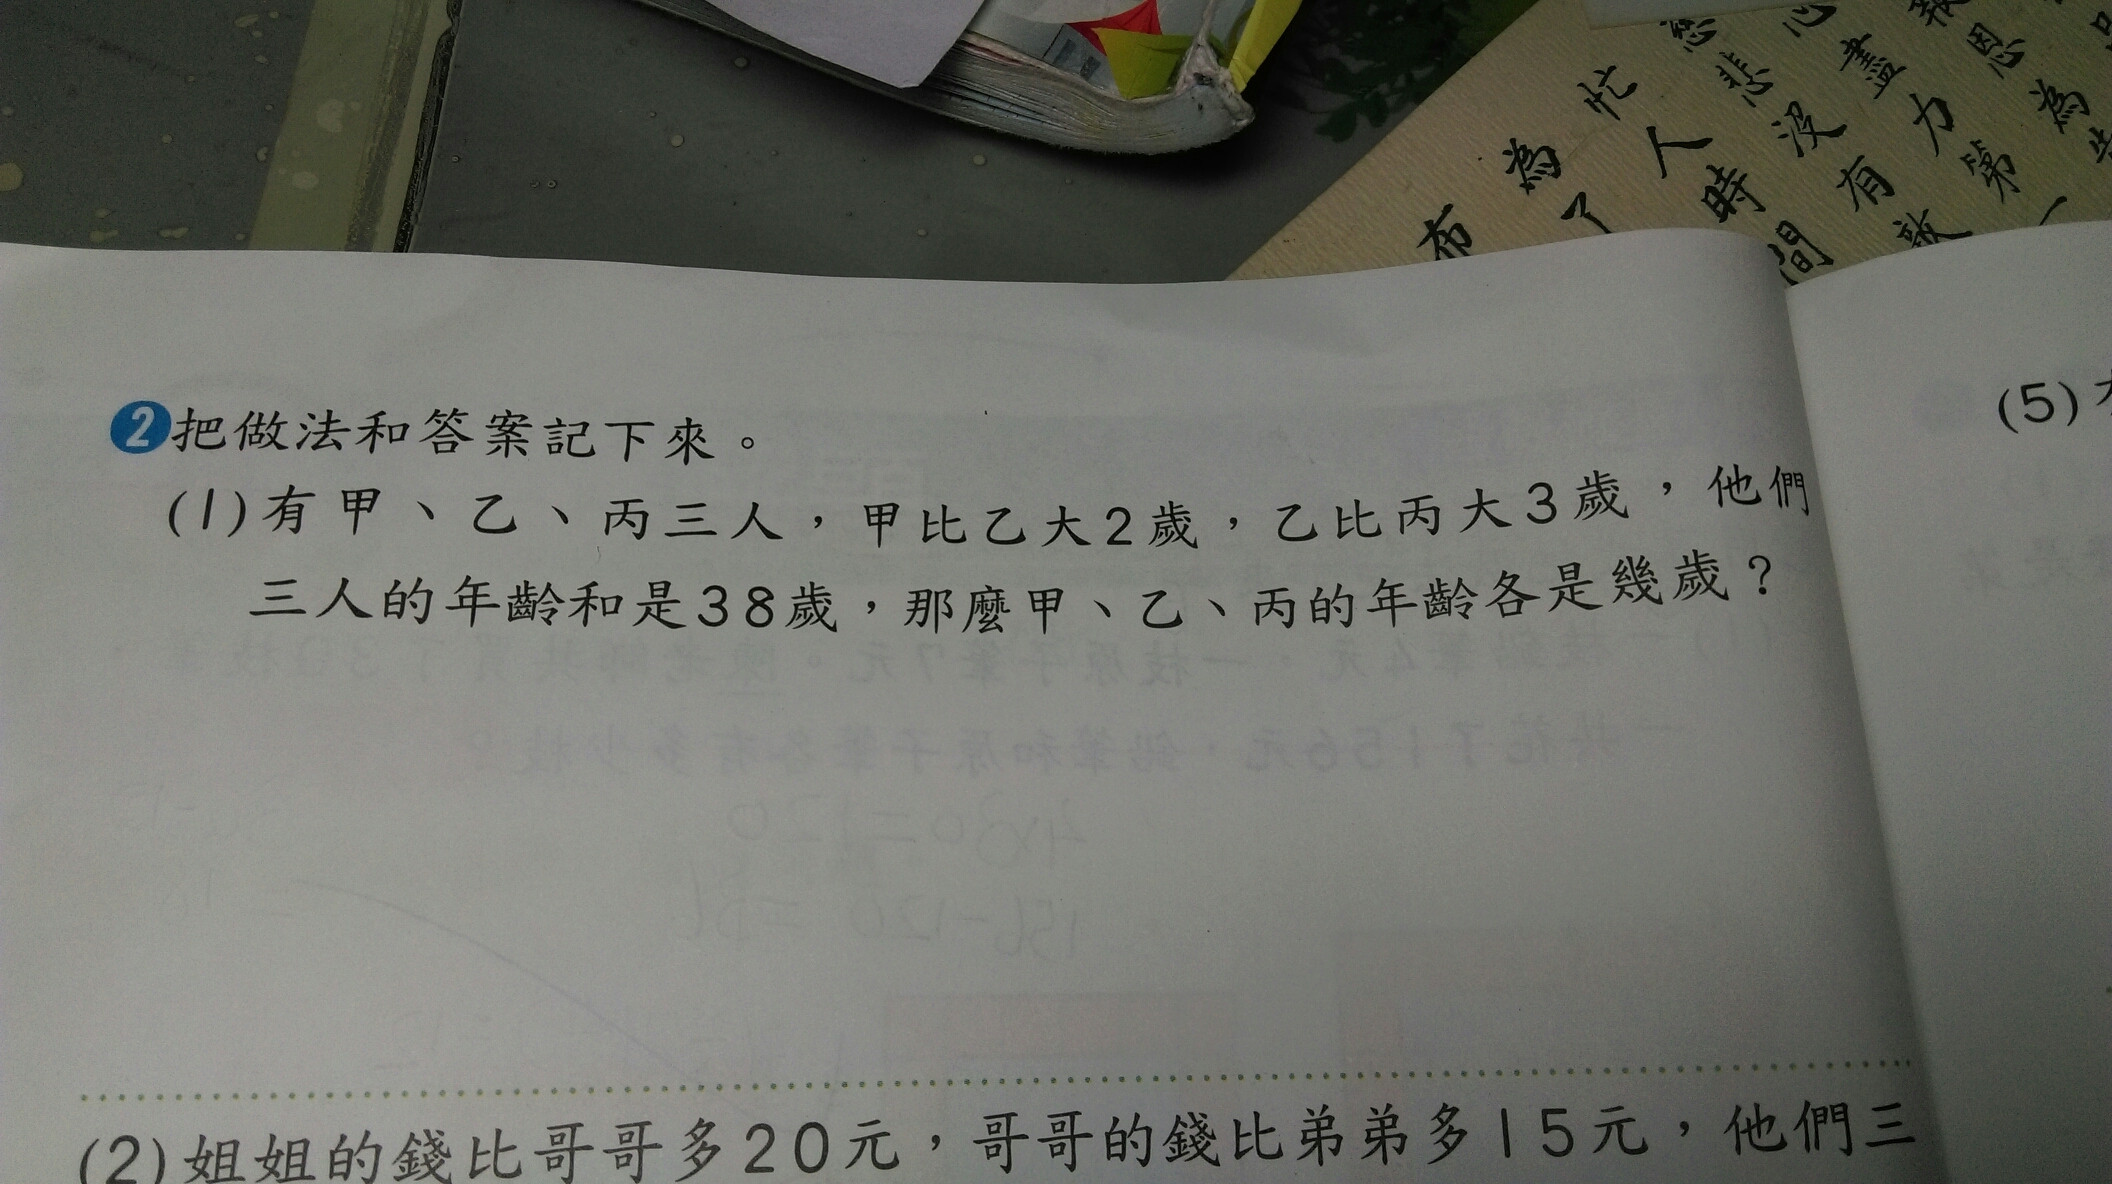 2 把做法和答案記下來。
(1)有甲、乙、丙三人，甲比乙大2歲，乙比丙大3歲，他們
三人的年齡和是38歲，那麼甲、乙、丙的年齡各是幾歲？
(2)姐姐的錢比哥哥多20元，哥哥的錢比弟弟多15元，他們三
(5)
報恩
心盡力第一
慈悲沒有敵
忙人時間
為了
布
為